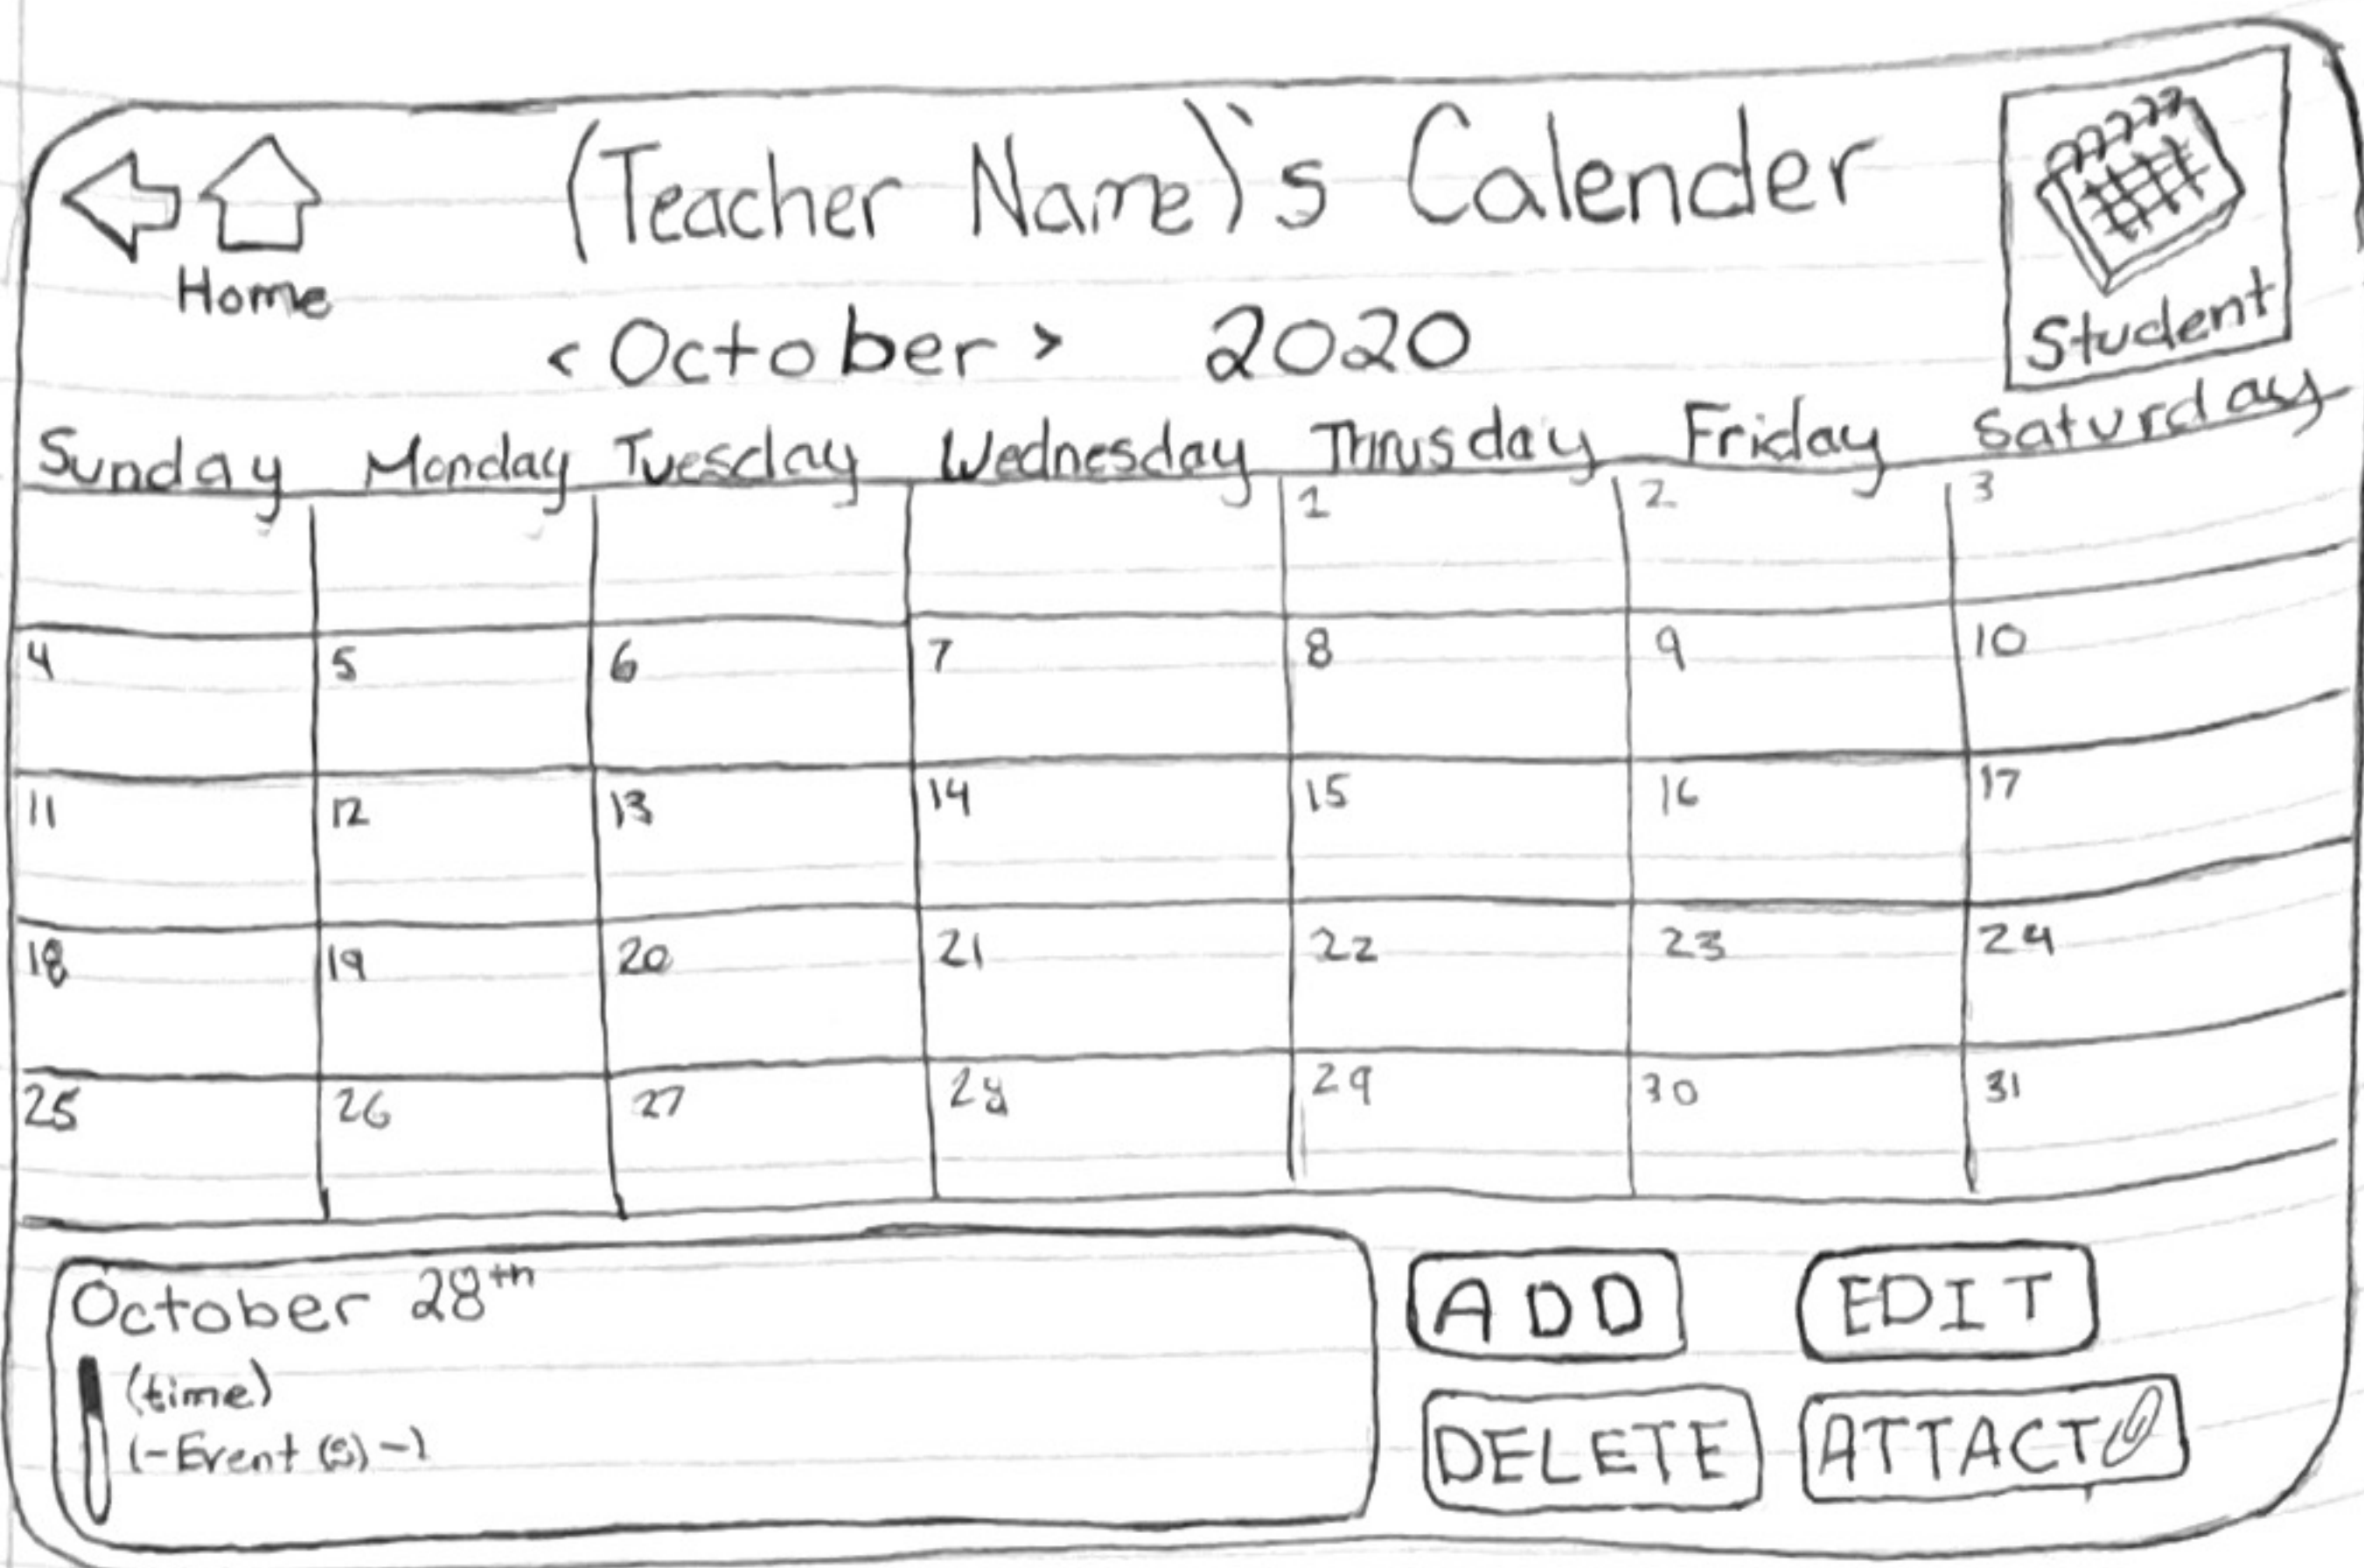 (Teacher Name)'s Calender
Home
< October > 2020
Student
Sunday Monday Tuesday Wednesday Thrusday Friday Saturday
1 2 3
4 5 6 7 8 9 10
11 12 13 14 15 16 17
18 19 20 21 22 23 24
25 26 27 28 29 30 31
October 28th
(time)
(-Event(s)-)
ADD EDIT
DELETE ATTACT